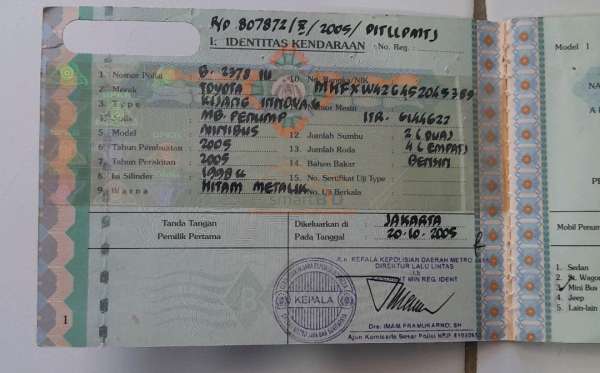 R/P 807872/X/2005/DITLLPMTJ
I. IDENTITAS KENDARAAN No. Reg.
Model 1
1. Nomor Polisi B. 2378 IU 10. No. Rangka/NIK
2. Merek TOYOTA MHFXW42G452045389
3. Type KIJANG INNOVA G Nomor Mesin
4. Jenis MB. PENUMP ITR. 6144627
5. Model MINIBUS 12. Jumlah Sumbu 2 (DUA)
6. Tahun Pembuatan 2005 13. Jumlah Roda 4 (EMPAT)
7. Tahun Perakitan 2005 14. Bahan Bakar BENSIN
8. Isi Silinder 1998 15. No. Sertifikat Uji Type
9. Warna HITAM METALIK No. Uji Berkala
Tanda Tangan
Pemilik Pertama
Dikeluarkan di : JAKARTA
Pada Tanggal : 20-10-2005
A.n. KEPALA KEPOLISIAN DAERAH METRO
DIREKTUR LALU LINTAS
MIN REG. IDENT
KEPALA
Drs. IMAM PRAMUKARNO, SH
Ajun Komisaris Besar Polisi NRP
1
Mobil Penum
1. Sedan
2. St. Wagon
3. Mini Bus
4. Jeep
5. Lain-lain